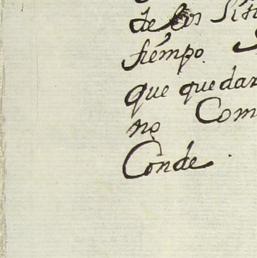 de los
tiempo.
que quedar
no Com
Conde.